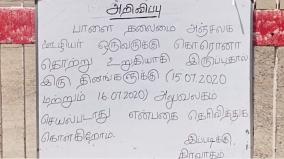 அறிவிப்பு
பாளை தலைமை அஞ்சலக
ஊழியர் ஒருவருக்கு கொரோனா
தொற்று உறுதியாகி இருப்பதால்
இரு தினங்களுக்கு (15.07.2020
மற்றும் 16.07.2020) அலுவலகம்
செயல்படாது என்பதை தெரிவித்துக்
கொள்கிறோம்.
இப்படிக்கு
நிர்வாகம்